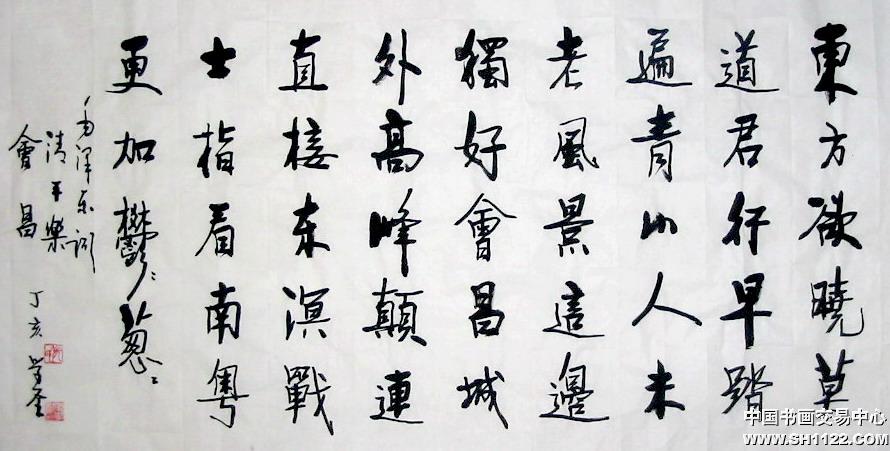 東方欲曉莫
道君行早踏
遍青山人未
老風景這邊
獨好會昌城
外高峰顛連
直接东溟戰
士指看南粤
更加鬱〻葱〻
毛泽东词
清平樂
會昌
丁亥
中国书画交易中心
WWW.SH1122.COM